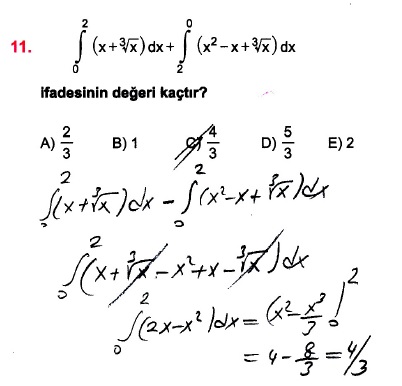 11. ∫₀² (x+∛x) dx + ∫₂⁰ (x²−x+∛x) dx
ifadesinin değeri kaçtır?
A) 2/3 B) 1 C) 4/3 D) 5/3 E) 2
∫₀² (x+∛x) dx − ∫₀² (x²−x+∛x) dx
∫₀² (x+∛x−x²+x−∛x) dx
∫₀² (2x−x²) dx = (x²−x³/3)|₀²
= 4 − 8/3 = 4/3